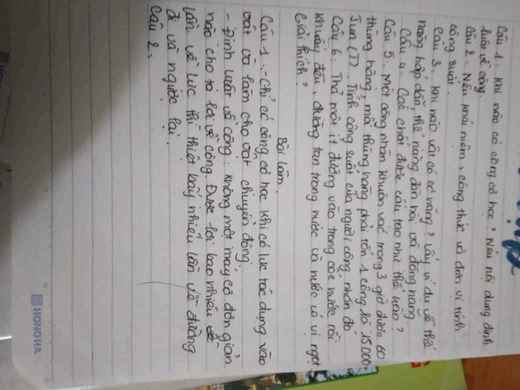 Câu 1. Khi nào có công cơ học? Nêu nội dung định
luật về công.
Câu 2. Nêu khái niệm, công thức và đơn vị tính
công suất.
Câu 3. Khi nào vật có cơ năng? Lấy ví dụ về thế
năng hấp dẫn, thế năng đàn hồi và động năng
Câu 4. Các chất được cấu tạo như thế nào?
Câu 5. Một công nhân khuân vác trong 3 giờ được 60
thùng hàng, mỗi thùng hàng phải tốn 1 công là 15.000
Jun (J). Tính công suất của người công nhân đó
Câu 6. Thả một ít đường vào trong cốc nước rồi
khuấy đều, đường tan trong nước và nước có vị ngọt
Giải thích?
Bài làm.
Câu 1: Chỉ có công cơ học khi có lực tác dụng vào
vật và làm cho vật chuyển động.
- Định luật về công: Không một máy cơ đơn giản
nào cho ta lợi về công. Được lợi bao nhiêu
lần về lực thì thiệt bấy nhiêu lần về đường
đi và ngược lại.
Câu 2.
HONGHA